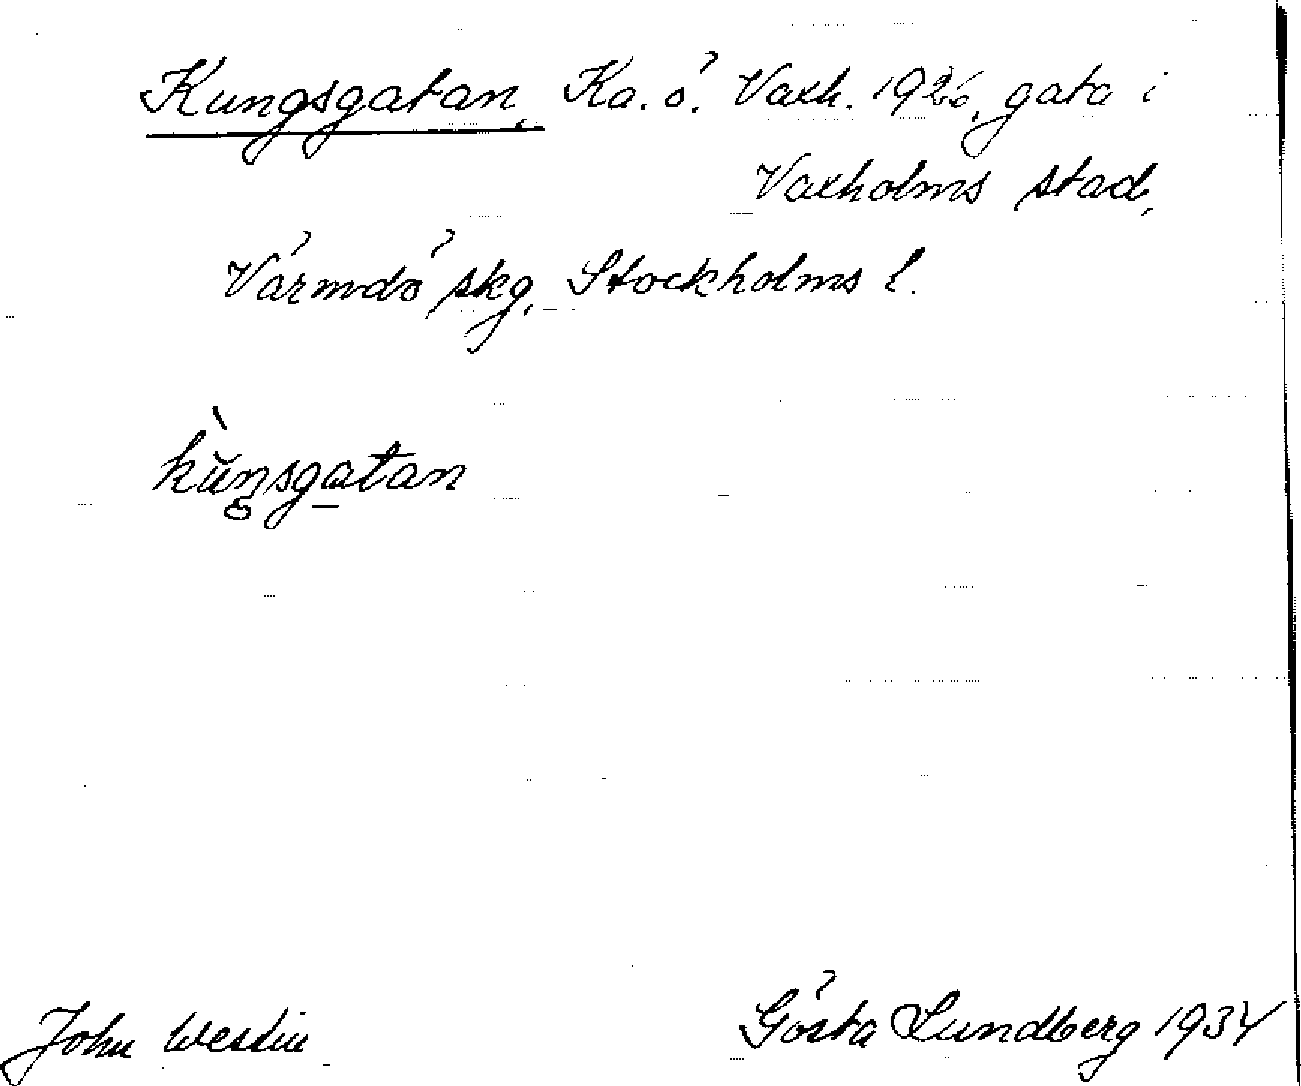 Kungsgatan, Ka. ö. Vaxh. 1926, gata i
Vaxholms stad,
Värmdö skg, Stockholms l.
kŭngsgatan
John Westin
Gösta Lundberg 1934